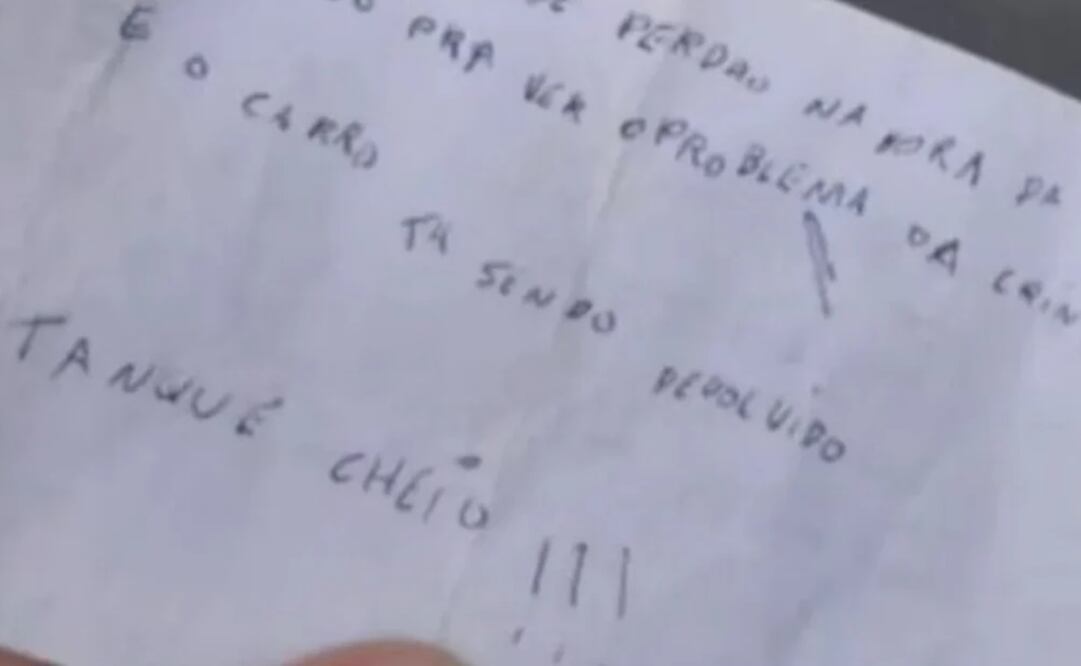 PERDAO NA HORA DA
PRA VER O PROBLEMA DA CRIN
E O CARRO TA SENDO DEVOLVIDO
TANQUE CHEIO !!!